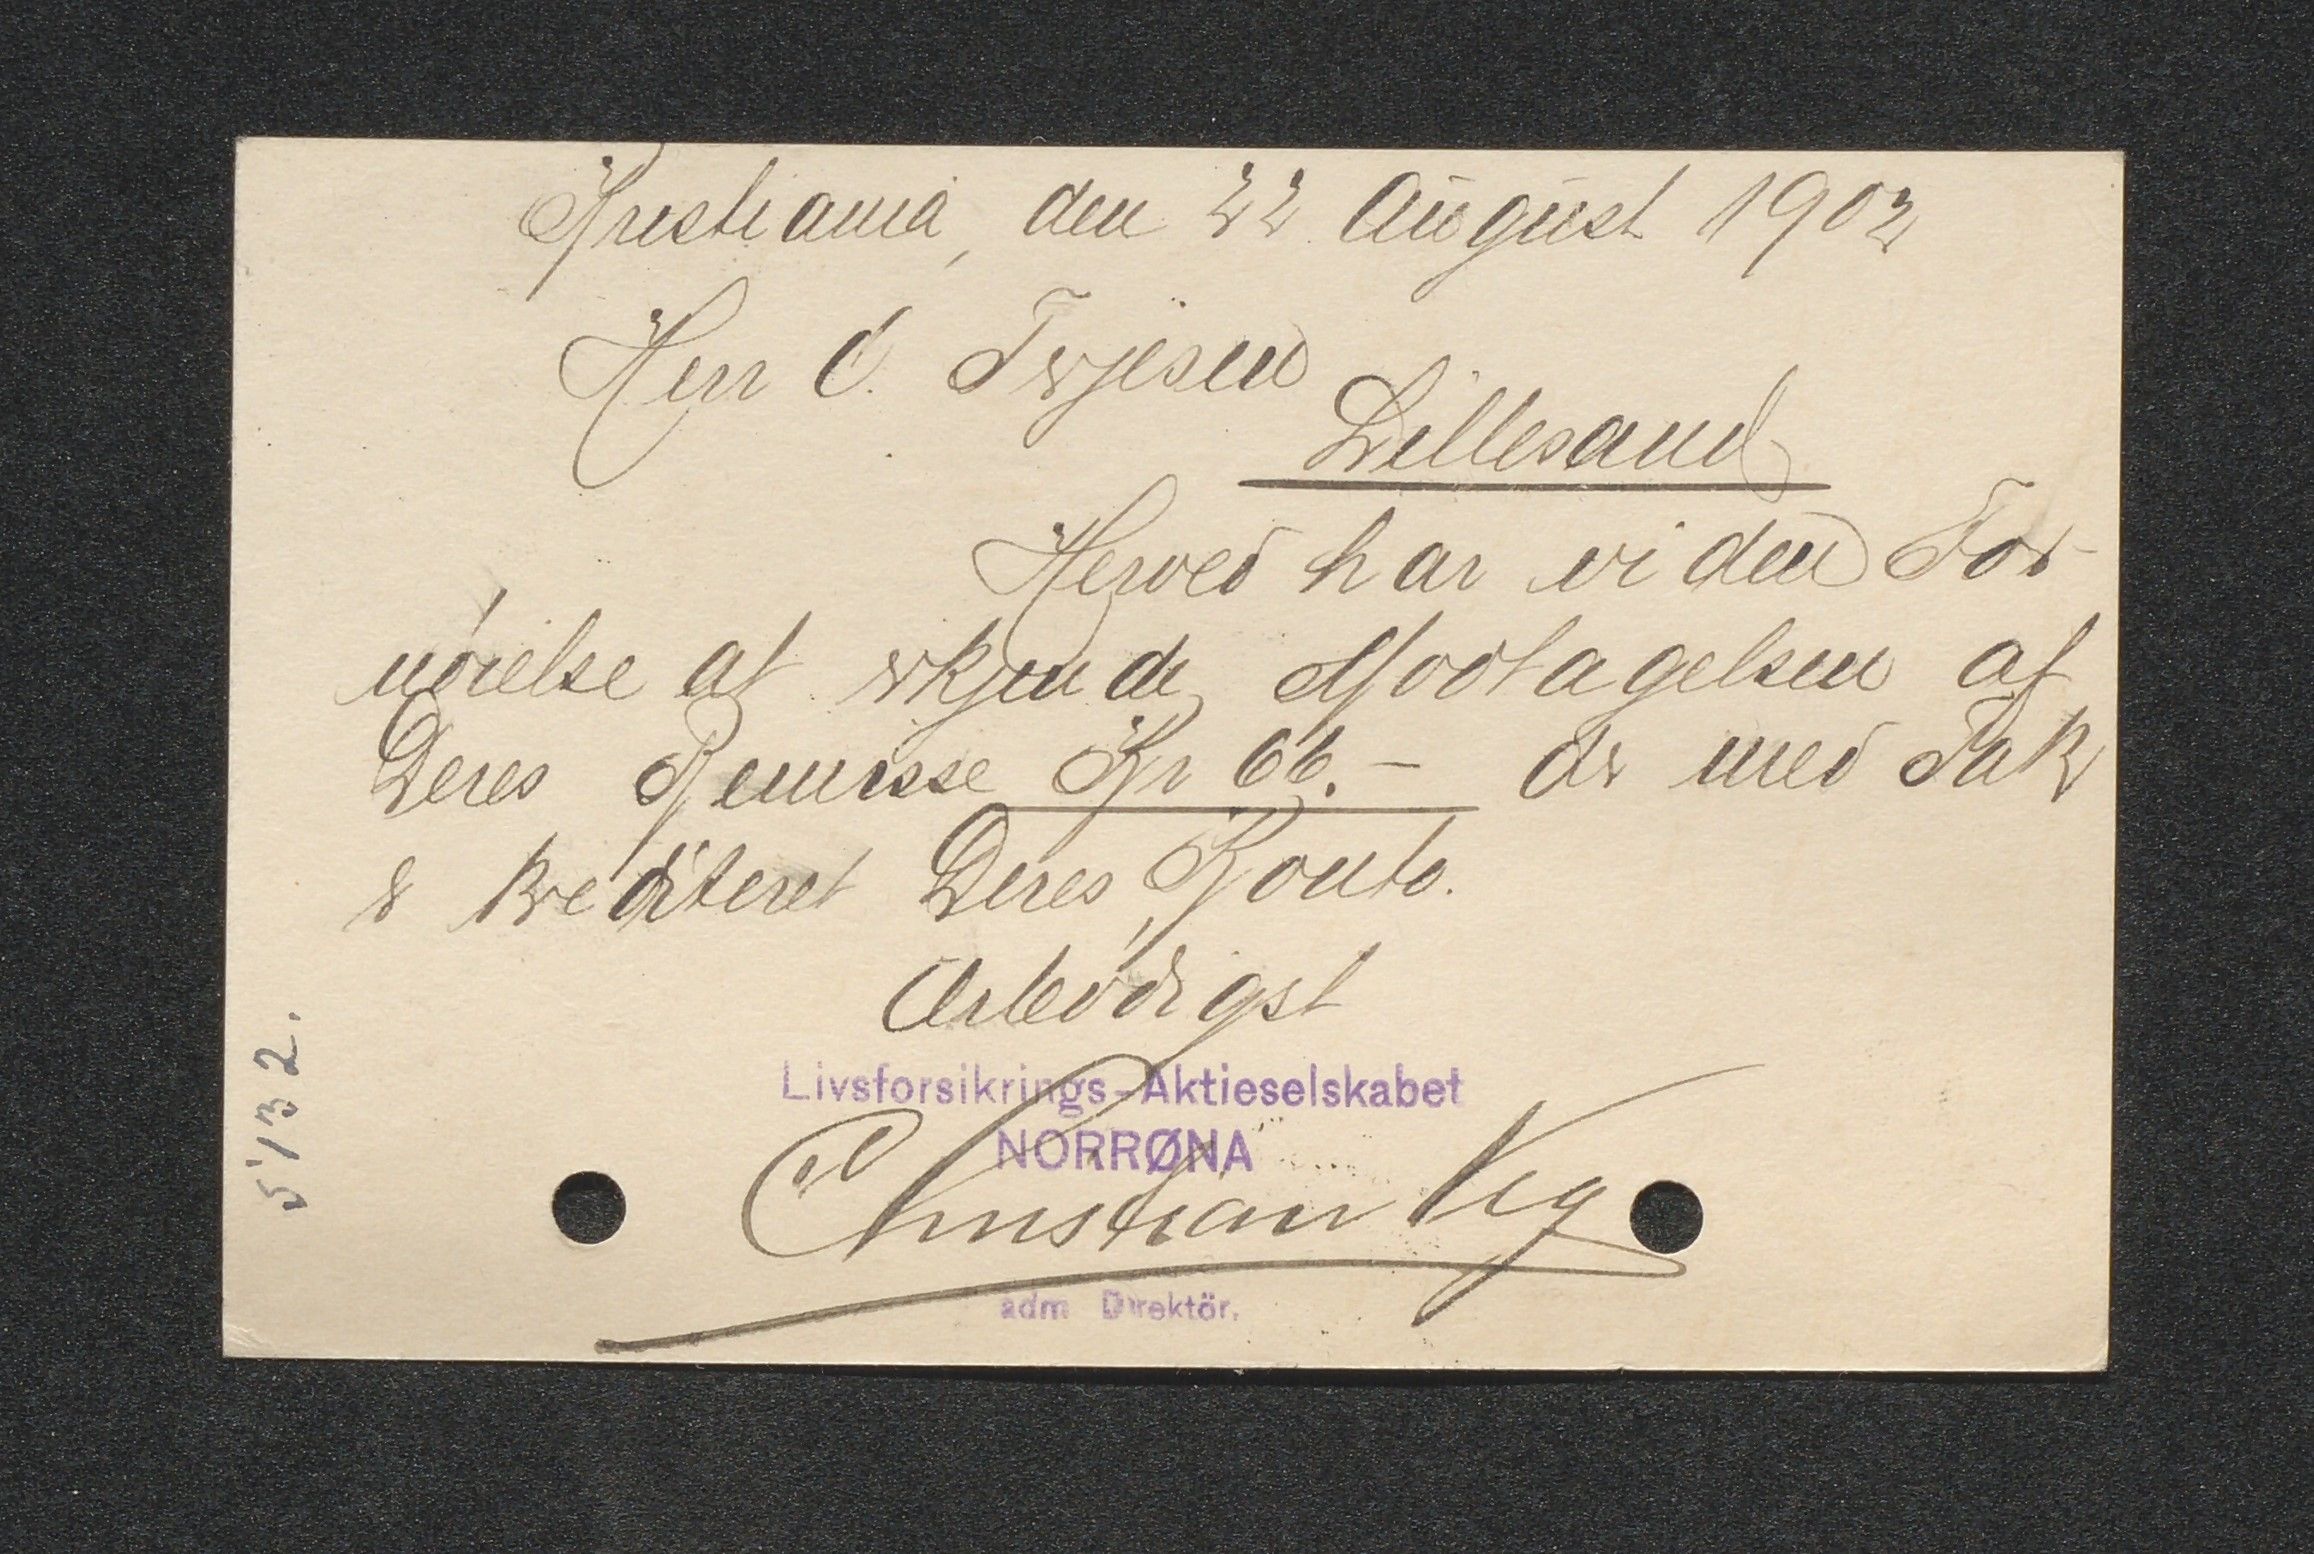 Kristiania, den 22 August 1902
Herr O. Terjesen
Lillesand
Herved har vi den For-
nøielse at erkjende Modtagelsen af
Deres Remisse Kr 66.- der med Tak
er krediteret Deres Konto.
Ærbødigst
Livsforsikrings-Aktieselskabet
NORRØNA
Christian
adm Direktör.
5132.